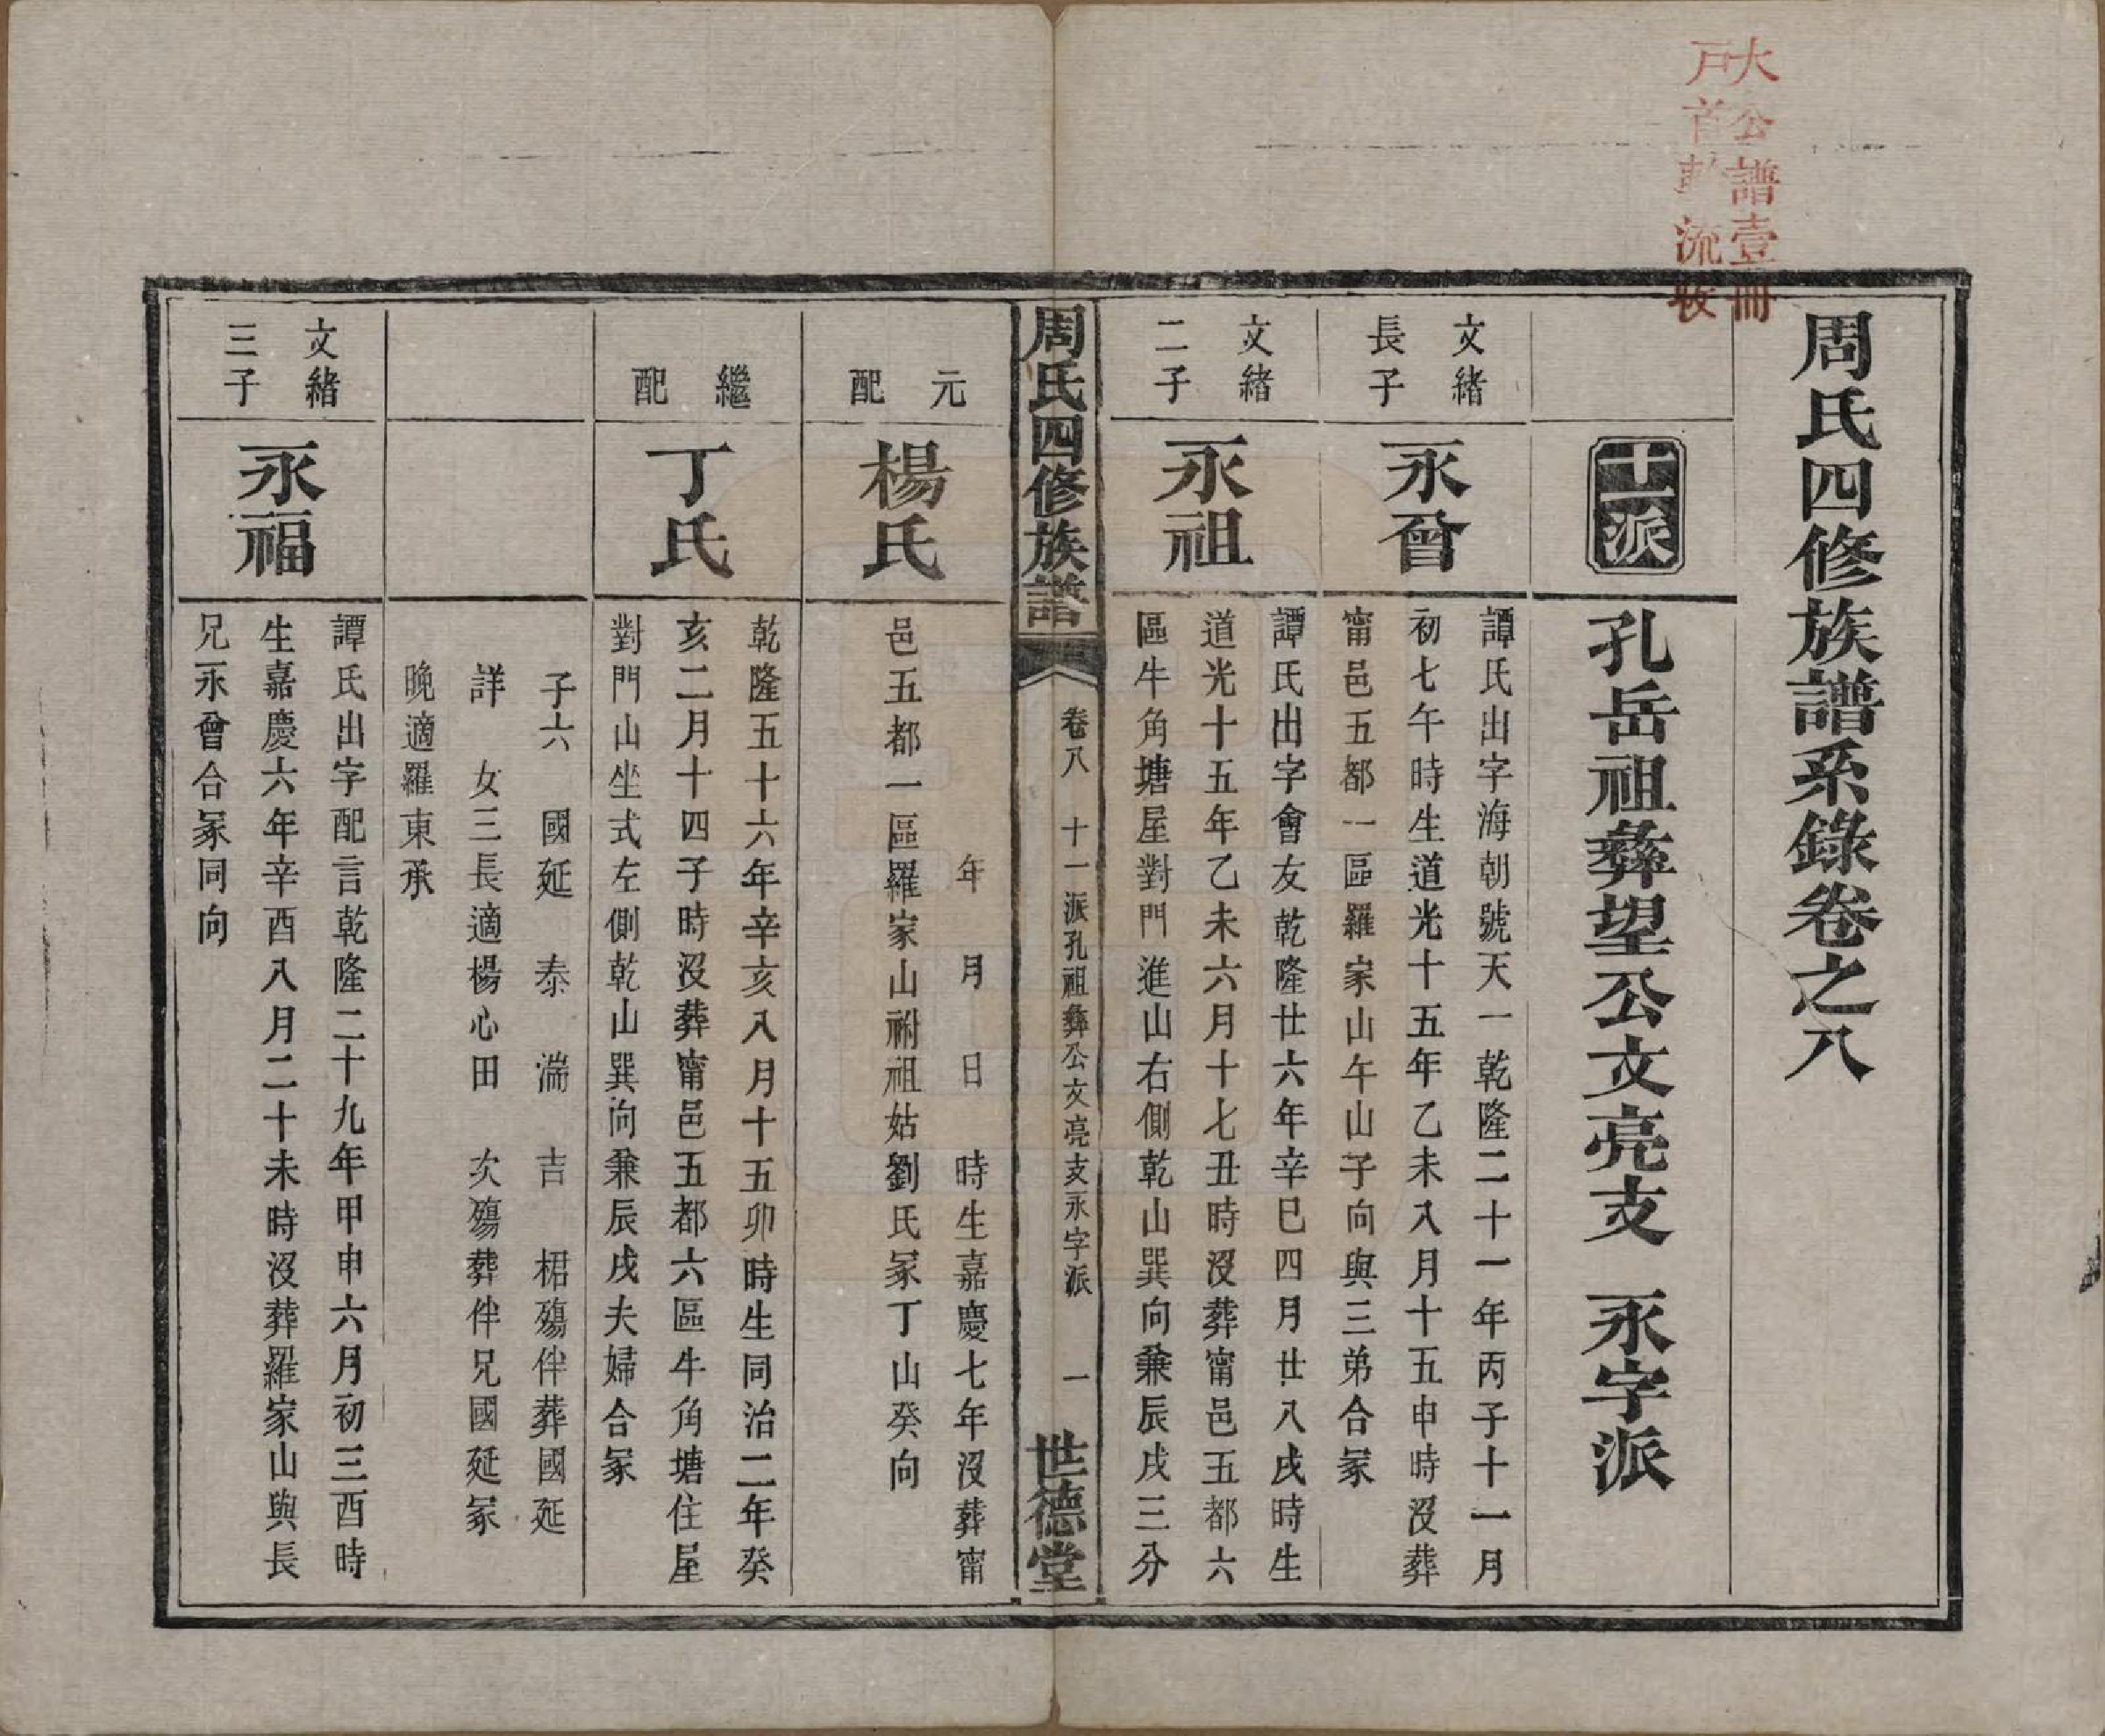 大公譜壹冊
戶首輪流收
周氏四修族譜系錄卷之八
十一派
孔岳祖彝望公文亮支 永字派
文緒
長子
永曾
譚氏出字海朝號天一乾隆二十一年丙子十一月
初七午時生道光十五年乙未八月十五申時沒葬
甯邑五都一區羅家山午山子向與三弟合冢
文緒
二子
永祖
譚氏出字會友乾隆廿六年辛巳四月廿八戌時生
道光十五年乙未六月十七丑時沒葬甯邑五都六
區牛角塘屋對門進山右側乾山巽向兼辰戌三分
周氏四修族譜
卷八 十一派孔祖彝公文亮支永字派 一
世德堂
元
配
楊氏
年 月 日 時生嘉慶七年沒葬甯
邑五都一區羅家山祔祖姑劉氏冢丁山癸向
繼
配
丁氏
乾隆五十六年辛亥八月十五卯時生同治二年癸
亥二月十四子時沒葬甯邑五都六區牛角塘住屋
對門山坐式左側乾山巽向兼辰戌夫婦合冢
子六 國延 泰 湍 吉 桾殤伴葬國延
詳 女三長適楊心田 次殤葬伴兄國延冢
晚適羅東承
文緒
三子
永福
譚氏出字配言乾隆二十九年甲申六月初三酉時
生嘉慶六年辛酉八月二十未時沒葬羅家山與長
兄永曾合冢同向